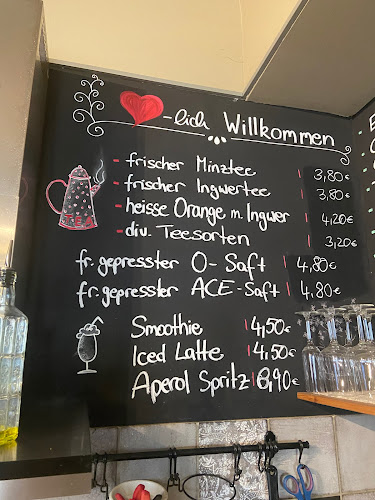 -lich Willkommen
- frischer Minztee 3,80€
- frischer Ingwertee 3,80€
- heisse Orange m. Ingwer 4,20€
- div. Teesorten 3,20€
fr. gepresster O-Saft 4,80€
fr. gepresster ACE-Saft 4,80€
Smoothie 4,50€
Iced Latte 4,50€
Aperol Spritz 6,90€